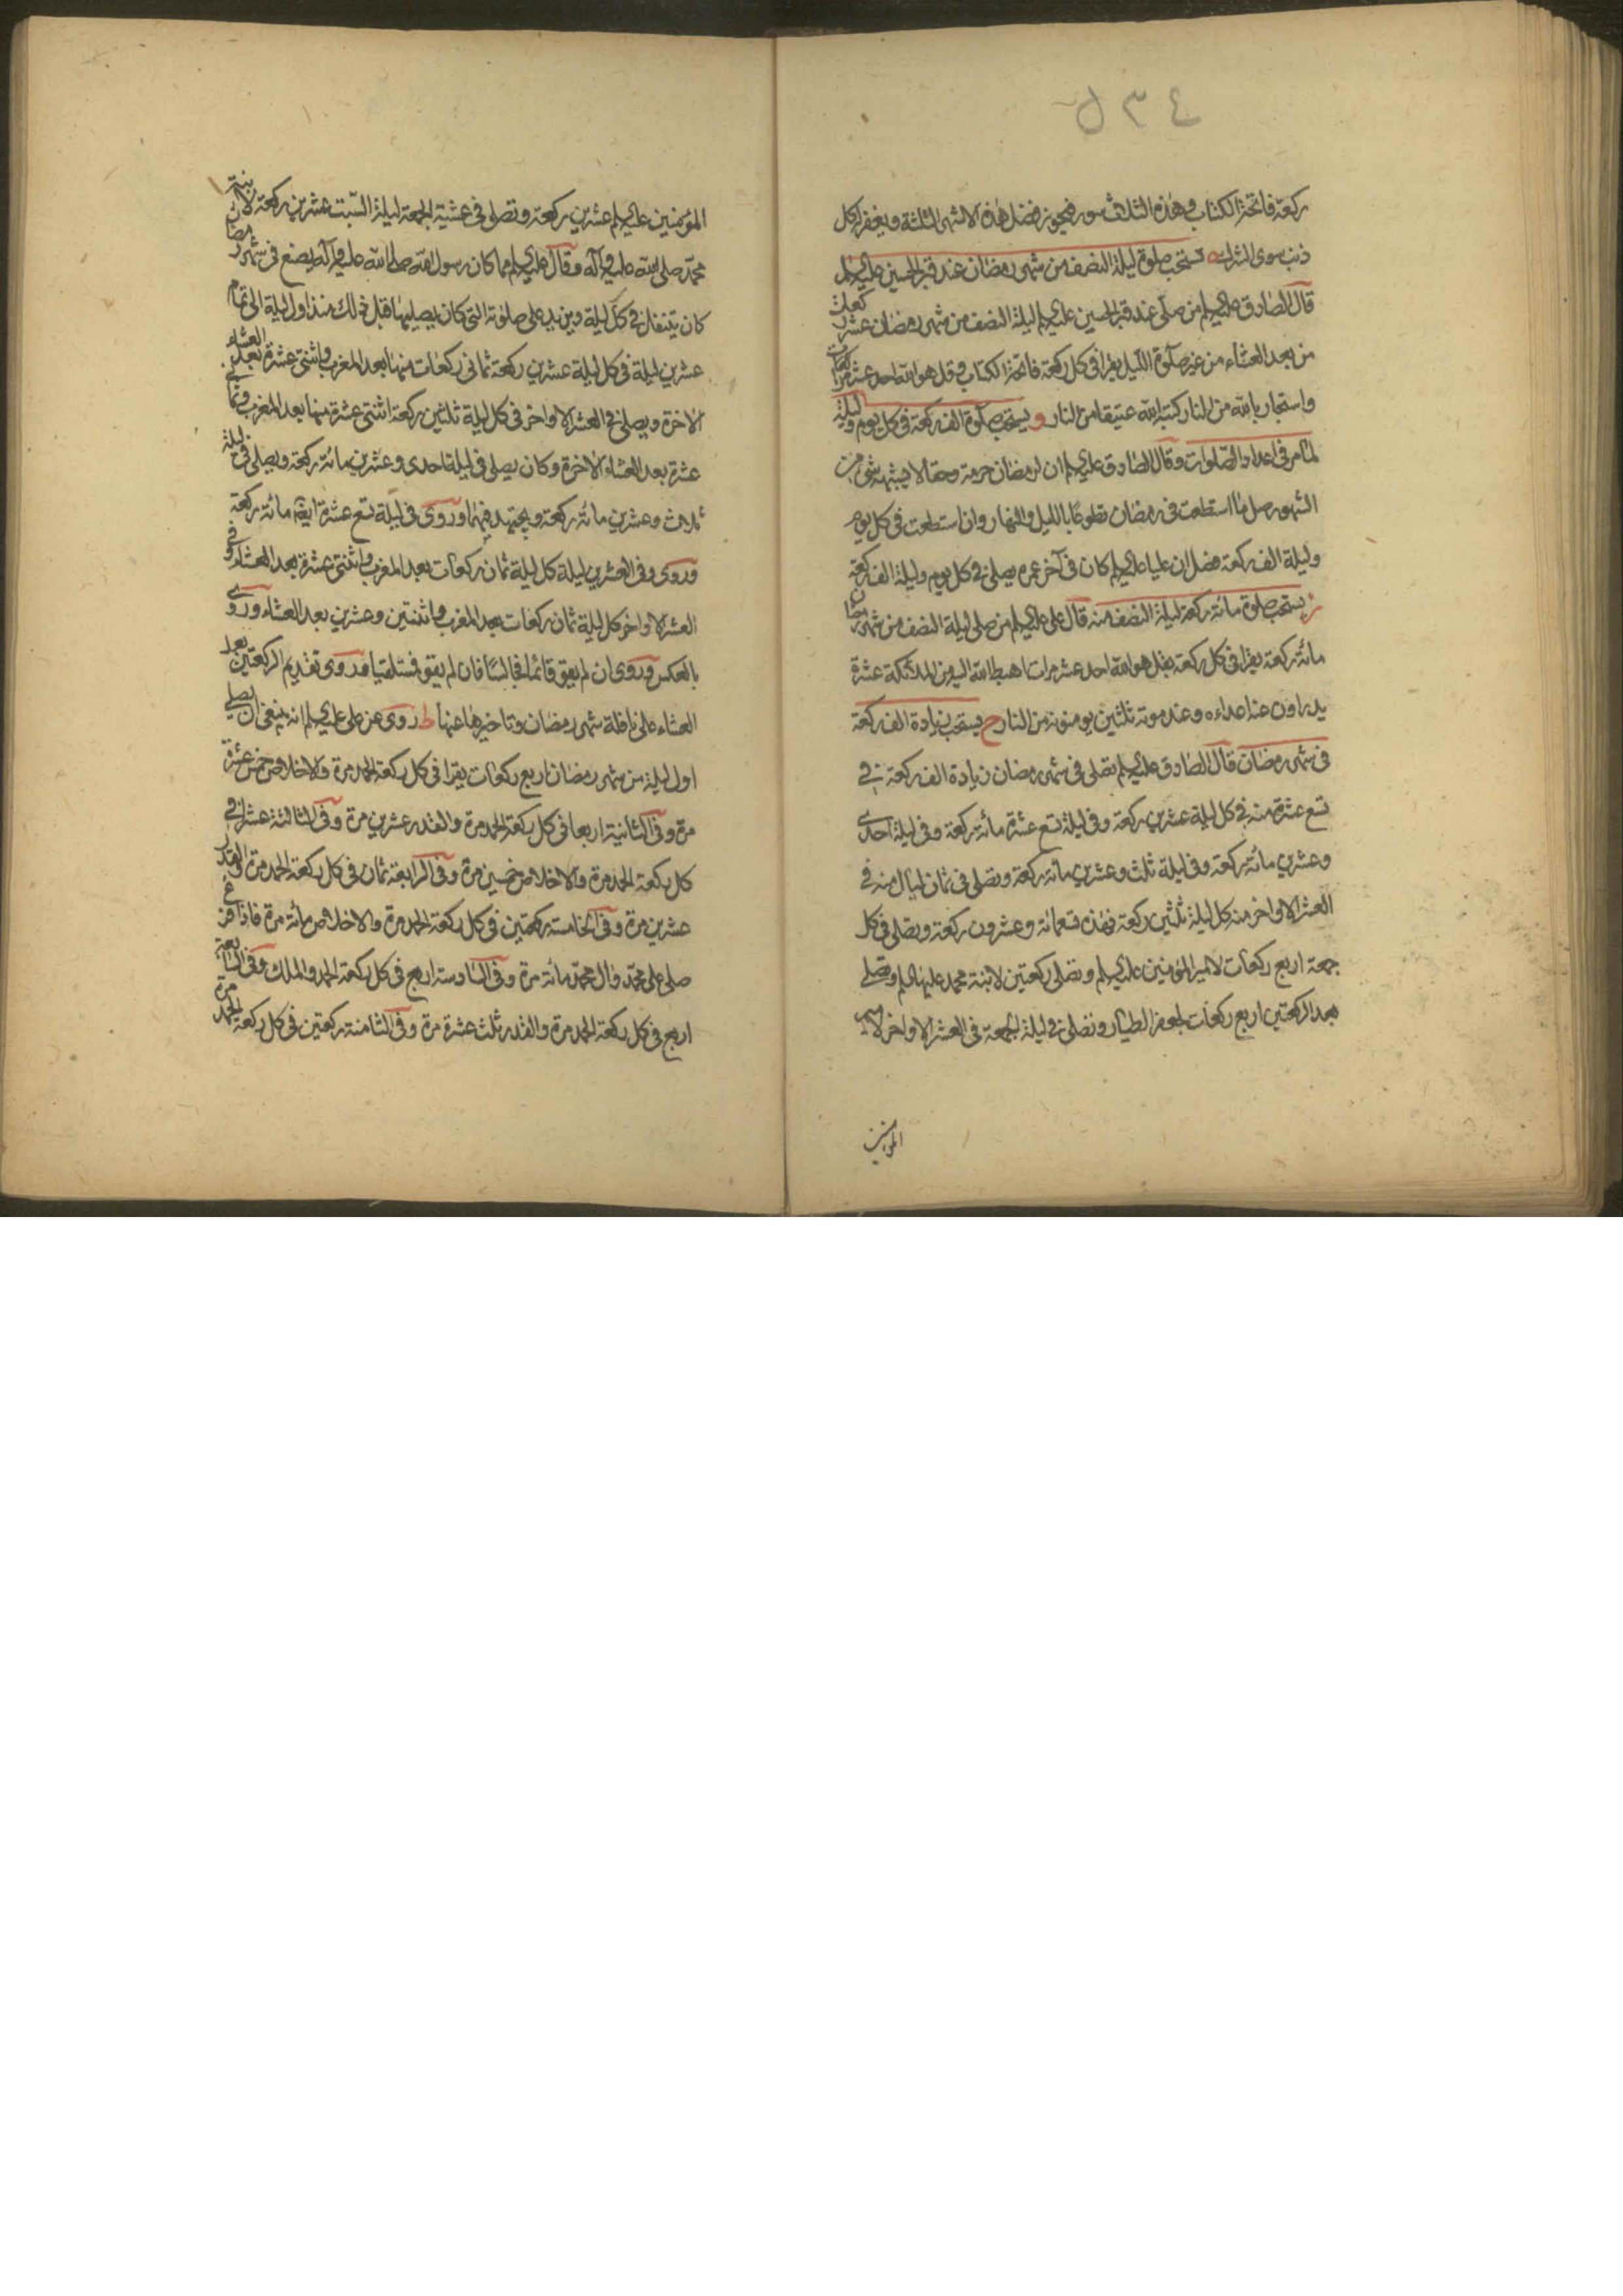 ٥٣٤
ركعة فاتحة الكتاب وهذه الثلاث سور فيحوز فضل هذه الاشهر الثلثة ويغفر له كل
ذنب سوى الشرك ه تستحب صلوة ليلة النصف من شهر رمضان عند قبر الحسين عليه السلم
قال الصادق عليه السلم من صلى عند قبر الحسين عليه السلم ليلة النصف من شهر رمضان عشر ركعات
من بعد العشاء من غير صلوة الليل يقرا فى كل ركعة فاتحة الكتاب وقل هو الله احد عشر مرات
واستجار بالله من النار كتبه الله عتيقا من النار و يستحب صلوة الف ركعة فى كل يوم وليلة
لما مر فى اعداد الصلوات وقال الصادق عليه السلم ان لرمضان حرمة وحقا لا يشبهه شئ من
الشهور صل ما استطعت فى رمضان تطوعا بالليل والنهار وان استطعت فى كل يوم
وليلة الف ركعة فصل ان عليا عليه السلم كان فى آخر عمره يصلى فى كل يوم وليلة الف ركعة
ز يستحب صلوة مائة ركعة ليلة النصف منه قال على عليه السلم من صلى ليلة النصف من شهر رمضان
مائة ركعة يقرا فى كل ركعة بقل هو الله احد عشر مرات اهبط الله اليه من الملائكة عشرة
يدراون عنه اعداءه وعند موته ثلثين يومنونه من النار ح يستحب زيادة الف ركعة
فى شهر رمضان قال الصادق عليه السلم تصلى فى شهر رمضان زيادة الف ركعة فى
تسع عشرة منه فى كل ليلة عشرين ركعة وفى ليلة تسع عشرة مائة ركعة وفى ليلة احدى
وعشرين مائة ركعة وفى ليلة ثلث وعشرين مائة ركعة وتصلى فى ثمان ليال منه فى
العشر الاواخر منه كل ليلة ثلثين ركعة فهذه تسعمائة وعشرون ركعة وتصلى فى كل
جمعة اربع ركعات لامير المؤمنين عليه السلم وتصلى ركعتين لابنة محمد عليهما السلم وتصلى
بعد الركعتين اربع ركعات لجعفر الطيار وتصلى فى ليلة الجمعة فى العشر الاواخر لامير
المؤمنين
المؤمنين عليه السلم عشرين ركعة وتصلى فى عشية الجمعة ليلة السبت عشرين ركعة لابنة
محمد صلى الله عليه وآله وقال عليه السلم مما كان رسول الله صلى الله عليه وآله يصنع فى شهر رمضان
كان يتنفل فى كل ليلة ويزيد على صلوته التى كان يصليها قبل ذلك منذ اول ليلة الى تمام
عشرين ليلة فى كل ليلة عشرين ركعة ثمانى ركعات منها بعد المغرب واثنتى عشرة بعد العشاء
الاخرة ويصلى فى العشر الاواخر فى كل ليلة ثلثين ركعة اثنتى عشرة منها بعد المغرب وثمانى
عشرة بعد العشاء الاخرة وكان يصلى فى ليلة احدى وعشرين مائة ركعة ويصلى فى ليلة
ثلاث وعشرين مائة ركعة ويجتهد فيهما وروى فى ليلة تسع عشرة ايضا مائة ركعة
وروى وفى العشرين ليلة كل ليلة ثمان ركعات بعد المغرب واثنتى عشرة بعد العشاء وفى
العشر الاواخر كل ليلة ثمان ركعات بعد المغرب واثنتين وعشرين بعد العشاء وروى
بالعكس وروى ان لم يقو قائما فجالسا فان لم يقو فمستلقيا وروى تقديم الركعتين بعد
العشاء على نافلة شهر رمضان وتاخيرها عنها ط روى عن على عليه السلم انه ينبغى ان يصلى
اول ليلة من شهر رمضان اربع ركعات يقرا فى كل ركعة الحمد مرة والاخلاص خمس عشرة
مرة وفى الثانية اربعا فى كل ركعة الحمد مرة والقدر عشرين مرة وفى الثالثة عشرا فى
كل ركعة الحمد مرة والاخلاص خمسين مرة وفى الرابعة ثمان فى كل ركعة الحمد مرة والقدر
عشرين مرة وفى الخامسة ركعتين فى كل ركعة الحمد مرة والاخلاص مائة مرة فاذا فرغ
صلى على محمد وآل محمد مائة مرة وفى السادسة اربع فى كل ركعة الحمد والملك وفى السابعة
اربع فى كل ركعة الحمد مرة والقدر ثلث عشرة مرة وفى الثامنة ركعتين فى كل ركعة الحمد مرة